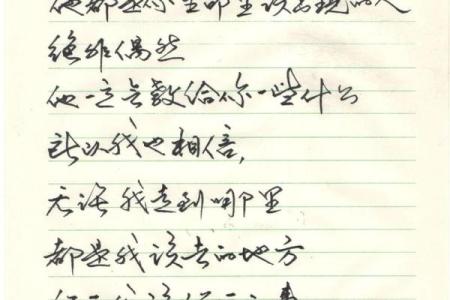 他都是你生命里该出现的人
绝非偶然
他一定会教给你一些什么
所以我也相信,
无论我走到哪里
都是我该去的地方